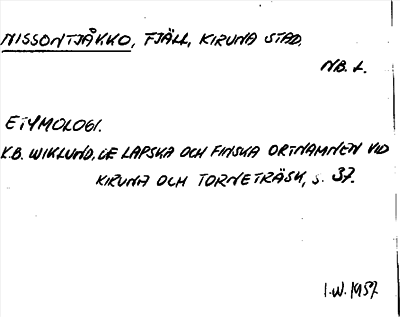 NISSONTJÅKKO, FJÄLL, KIRUNA STAD.
NB. L.
ETYMOLOGI.
K.B. WIKLUND, DE LAPSKA OCH FINSKA ORTNAMNEN VID
KIRUNA OCH TORNETRÄSK, s. 37.
I.W. 1957